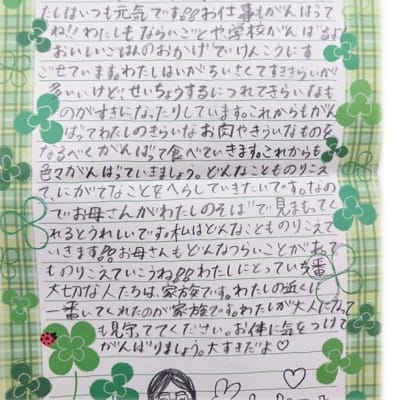 たしはいつも元気です!!お仕事もがんばって
ね!!わたしもならいごとや、学校がんばるよ
おいしいごはんのおかげでけんこうにす
ごせています。わたしはいがちいさくてすききらいが
多いけど、せいちょうするにつれてきらいなも
のがすきになったりしています。これからもがん
ばってわたしのきらいなお肉やきらいなものを
なるべくがんばって食べていきます。これからも
色々がんばっていきましょう。どんなこともものりこえ
て、にがてなことをへらしていきたいです。なの
でお母さんがわたしのそばで見まもってく
れるとうれしいです。私はどんなことものりこえて
いきます!!お母さんもどんなつらいことがあって
ものりこえていこうね!!わたしにとってい一番
大切な人たちは、家族です。わたしの近くに
一番いてくれたのが家族です。わたしが大人になって
も見守っててください。お体に気をつけて
がんばりましょう。大すきだよ♡